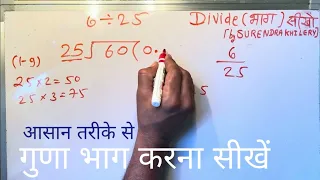 6÷25
Divide (भाग) सीखो
by SURENDRA KHILERY
25√60(0.
6
25
(1-9)
25×2=50
25×3=75
5
आसान तरीके से
गुणा भाग करना सीखें